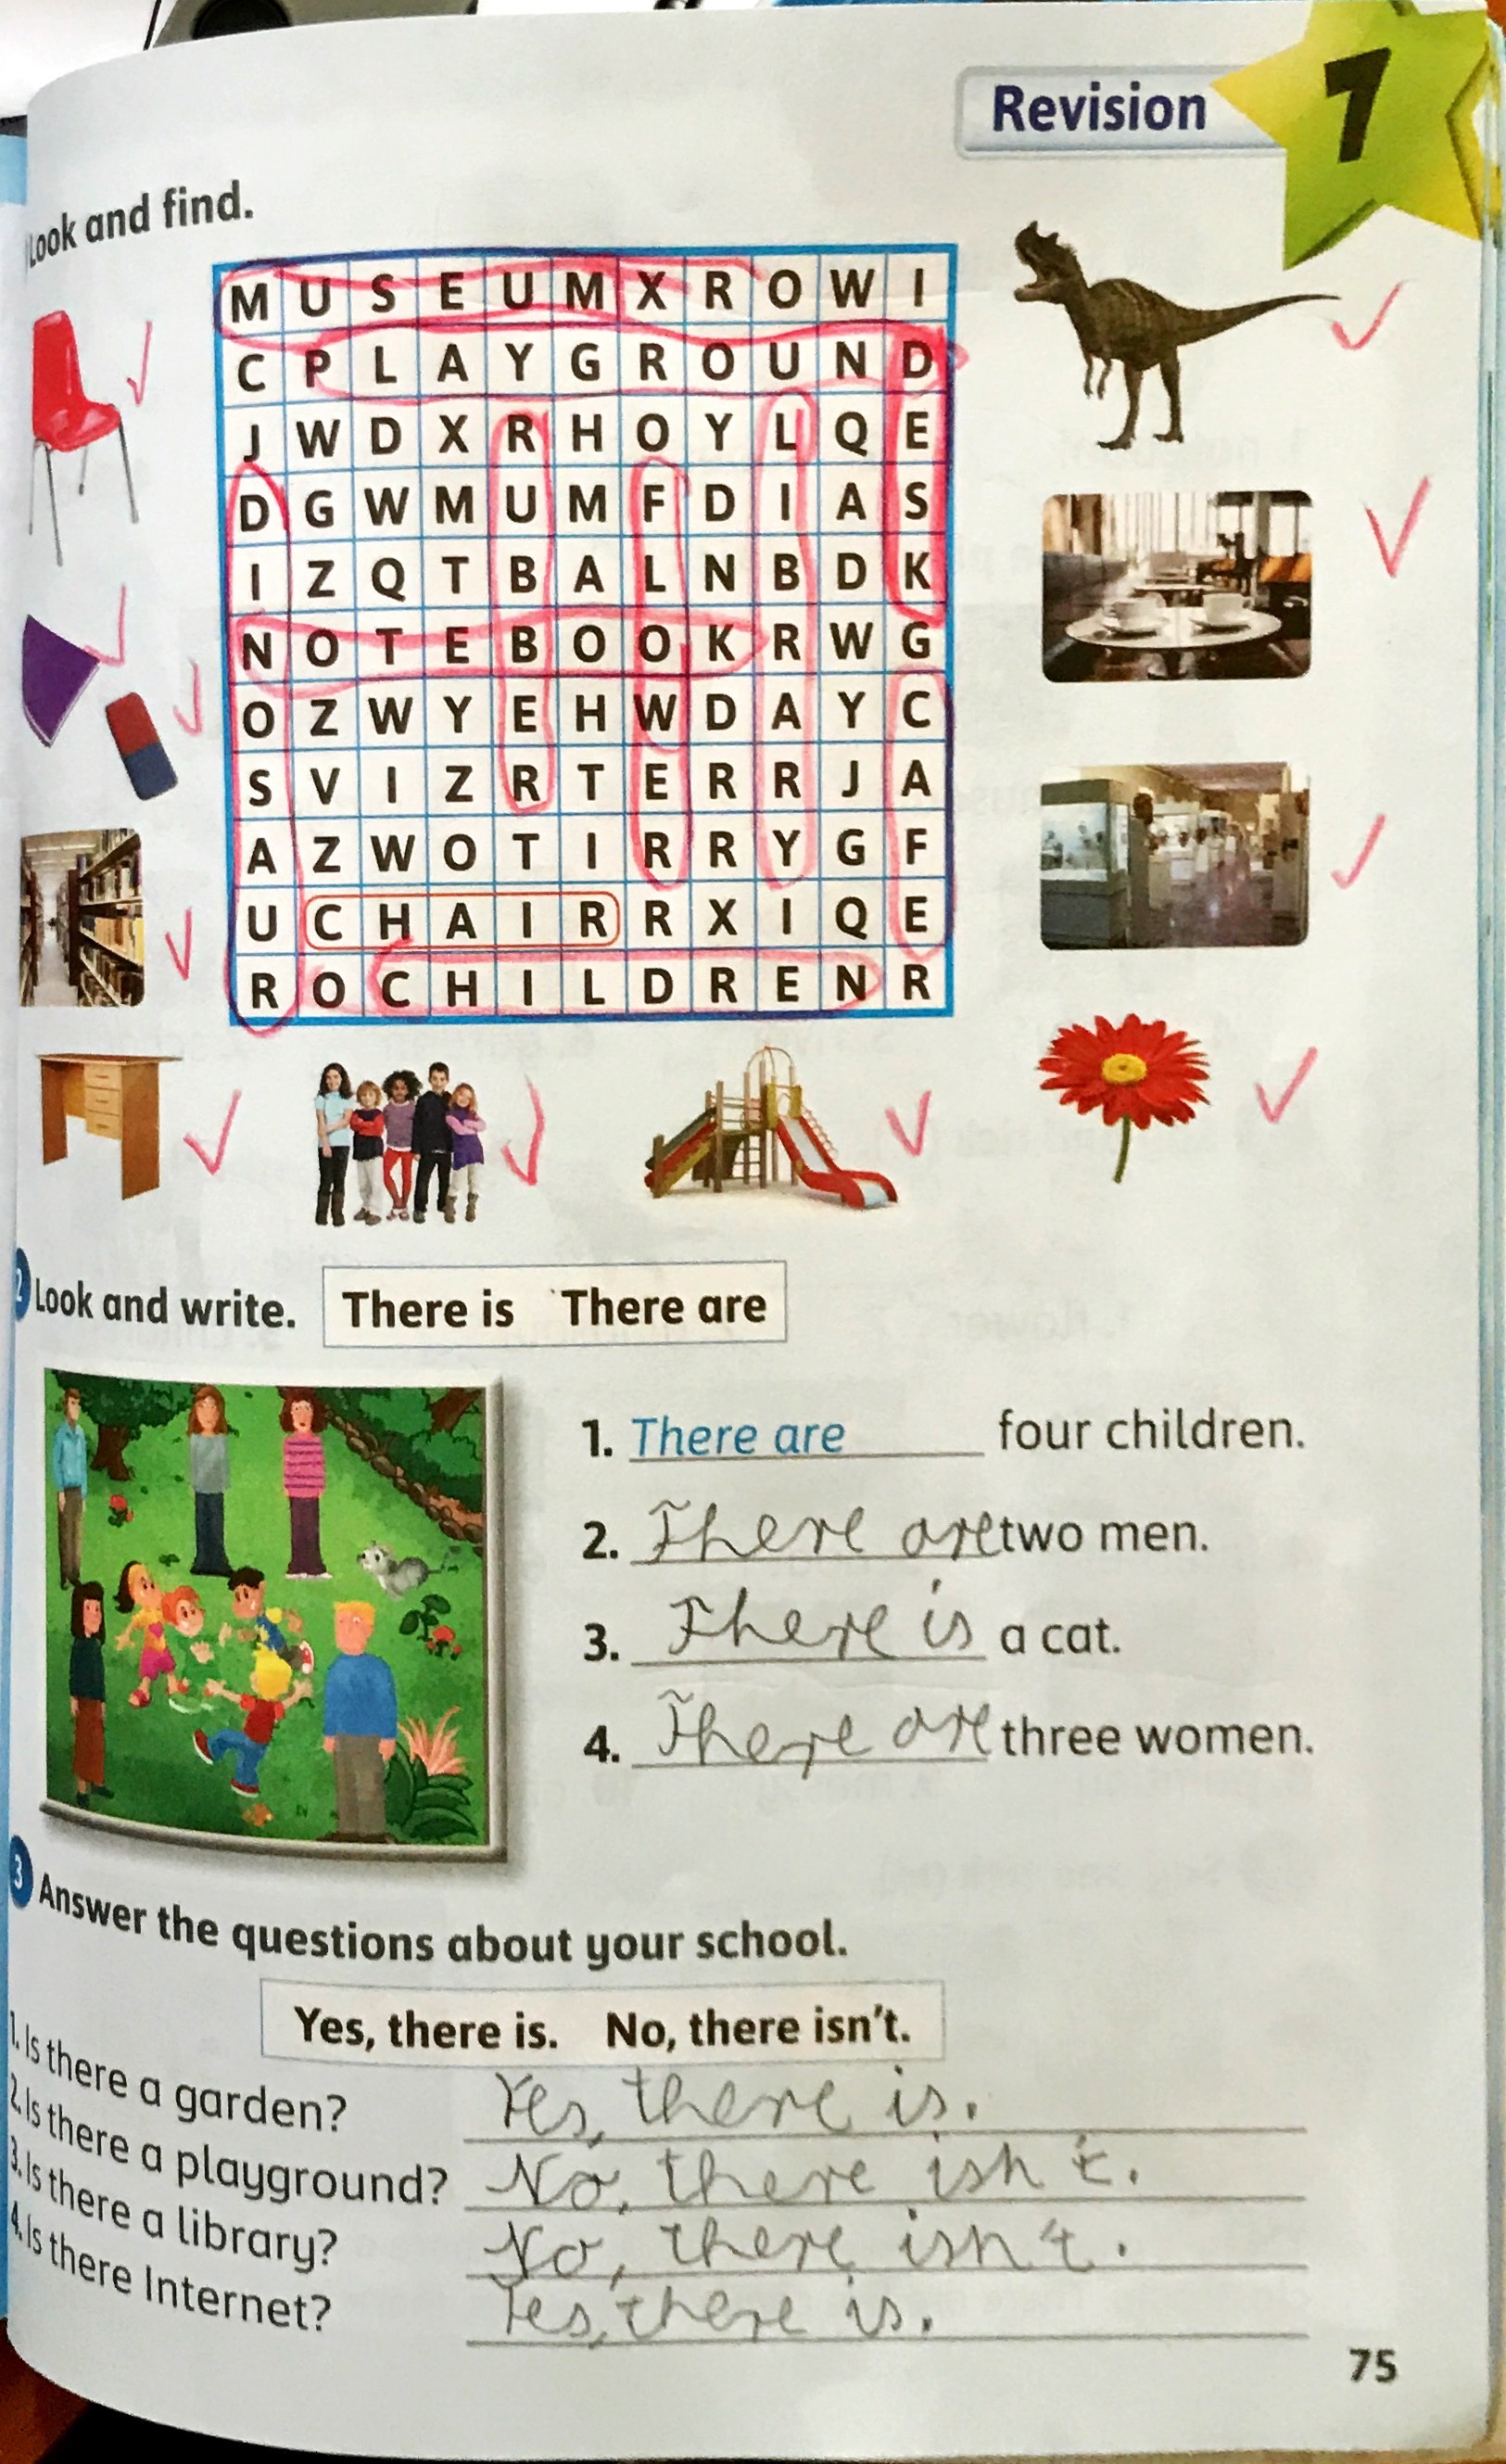 Revision 7
Look and find.
M U S E U M X R O W I
C P L A Y G R O U N D
J W D X R H O Y L Q E
D G W M U M F D I A S
I Z Q T B A L N B D K
N O T E B O O K R W G
O Z W Y E H W D A Y C
S V I Z R T E R R J A
A Z W O T I R R Y G F
U C H A I R R X I Q E
R O C H I L D R E N R
2 Look and write. There is There are
1. There are four children.
2. There are two men.
3. There is a cat.
4. There are three women.
3 Answer the questions about your school.
Yes, there is. No, there isn't.
1. Is there a garden? Yes, there is.
2. Is there a playground? No, there isn't.
3. Is there a library? No, there isn't.
4. Is there Internet? Yes, there is.
75